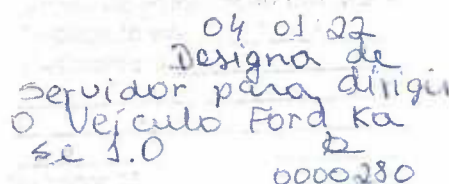 04 01 22
Designa de
servidor para dirigi
o Veículo Ford Ka
se 1.0
0000280